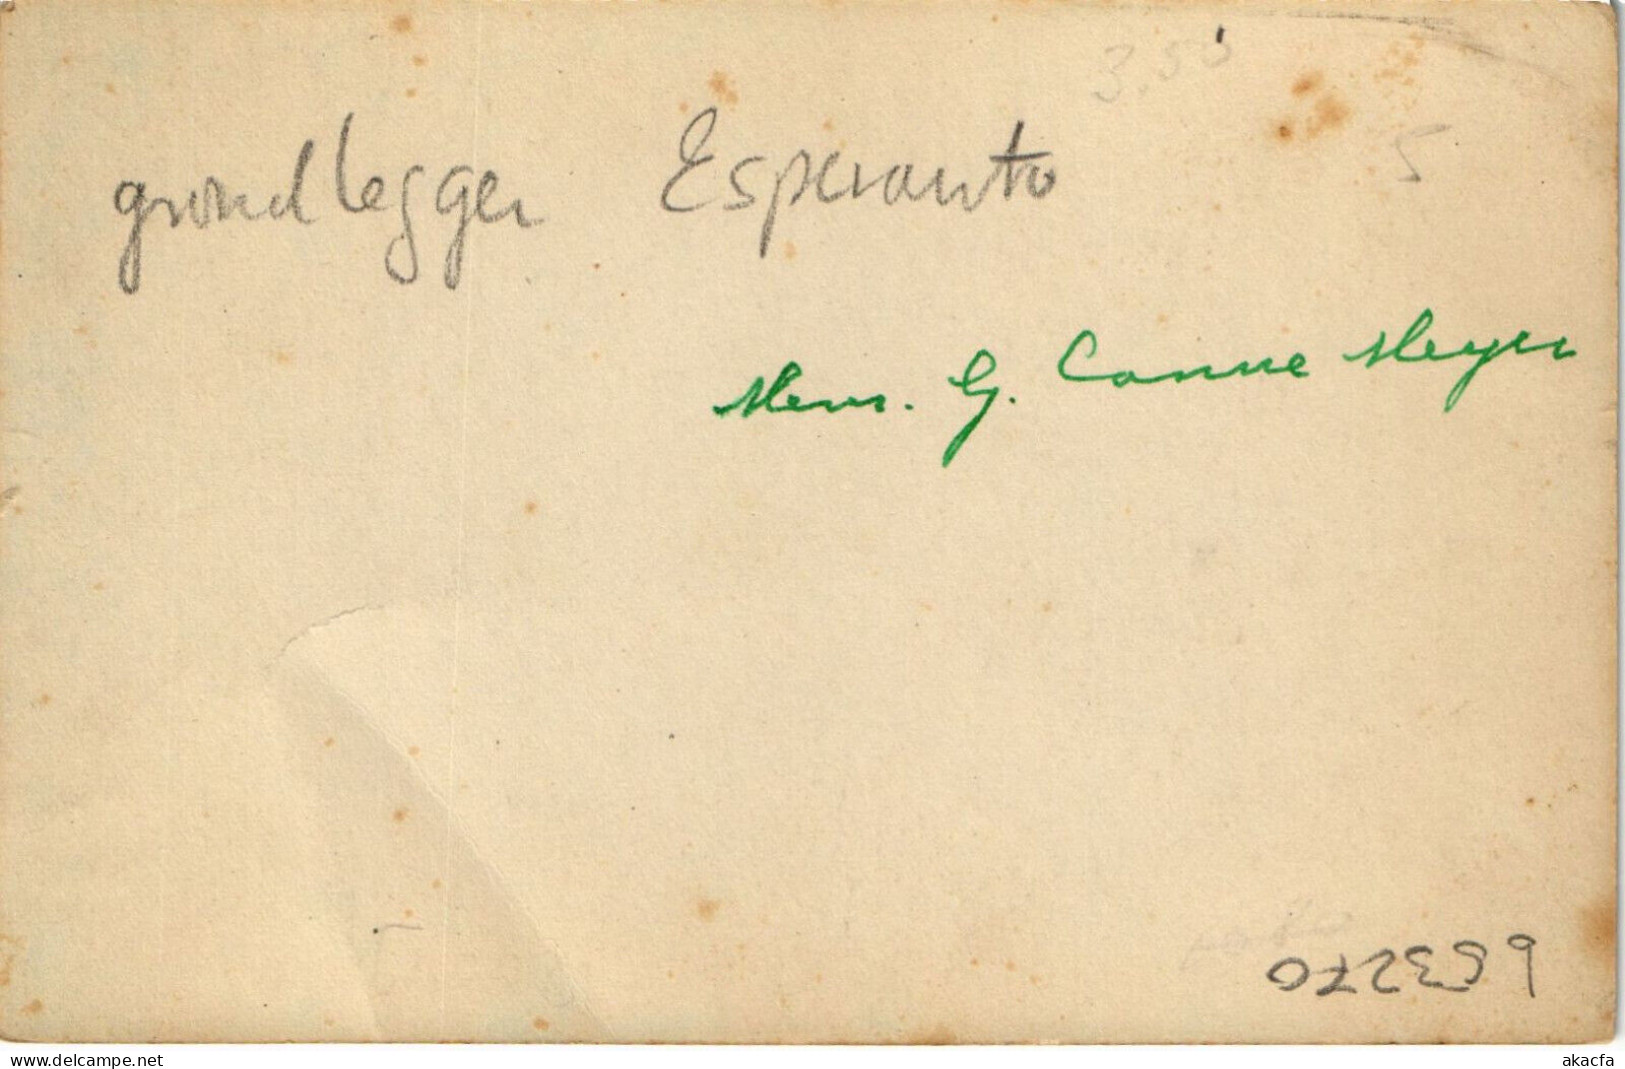 3.50
5
grondlegger Esperanto
Mevr. G. Canne Meyer
693270
www.delcampe.net
akacfa